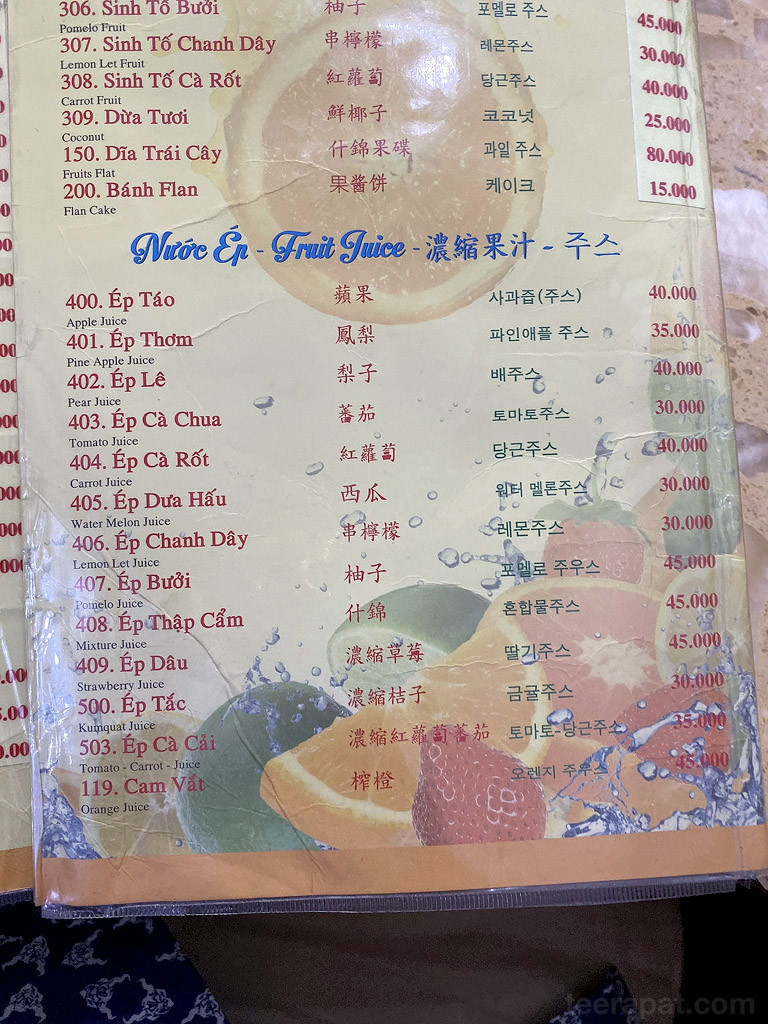 306. Sinh Tố Bưởi 柚子 포멜로 주스 45.000
Pomelo Fruit
307. Sinh Tố Chanh Dây 串檸檬 레몬주스 30.000
Lemon Let Fruit
308. Sinh Tố Cà Rốt 紅蘿蔔 당근주스 40.000
Carrot Fruit
309. Dừa Tươi 鮮椰子 코코넛 25.000
Coconut
150. Dĩa Trái Cây 什錦果碟 과일 주스 80.000
Fruits Flat
200. Bánh Flan 果醬餅 케이크 15.000
Flan Cake
Nước Ép - Fruit Juice - 濃縮果汁 - 주스
400. Ép Táo 蘋果 사과즙(주스) 40.000
Apple Juice
401. Ép Thơm 鳳梨 파인애플 주스 35.000
Pine Apple Juice
402. Ép Lê 梨子 배주스 40.000
Pear Juice
403. Ép Cà Chua 蕃茄 토마토주스 30.000
Tomato Juice
404. Ép Cà Rốt 紅蘿蔔 당근주스 40.000
Carrot Juice
405. Ép Dưa Hấu 西瓜 워터 멜론주스 30.000
Water Melon Juice
406. Ép Chanh Dây 串檸檬 레몬주스 30.000
Lemon Let Juice
407. Ép Bưởi 柚子 포멜로 주우스 45.000
Pomelo Juice
408. Ép Thập Cẩm 什錦 혼합물주스 45.000
Mixture Juice
409. Ép Dâu 濃縮草莓 딸기주스 45.000
Strawberry Juice
500. Ép Tắc 濃縮桔子 금귤주스 30.000
Kumquat Juice
503. Ép Cà Cải 濃縮紅蘿蔔蕃茄 토마토-당근주스 35.000
Tomato - Carrot - Juice
119. Cam Vắt 榨橙 오렌지 주우스 45.000
Orange Juice
teerapat.com